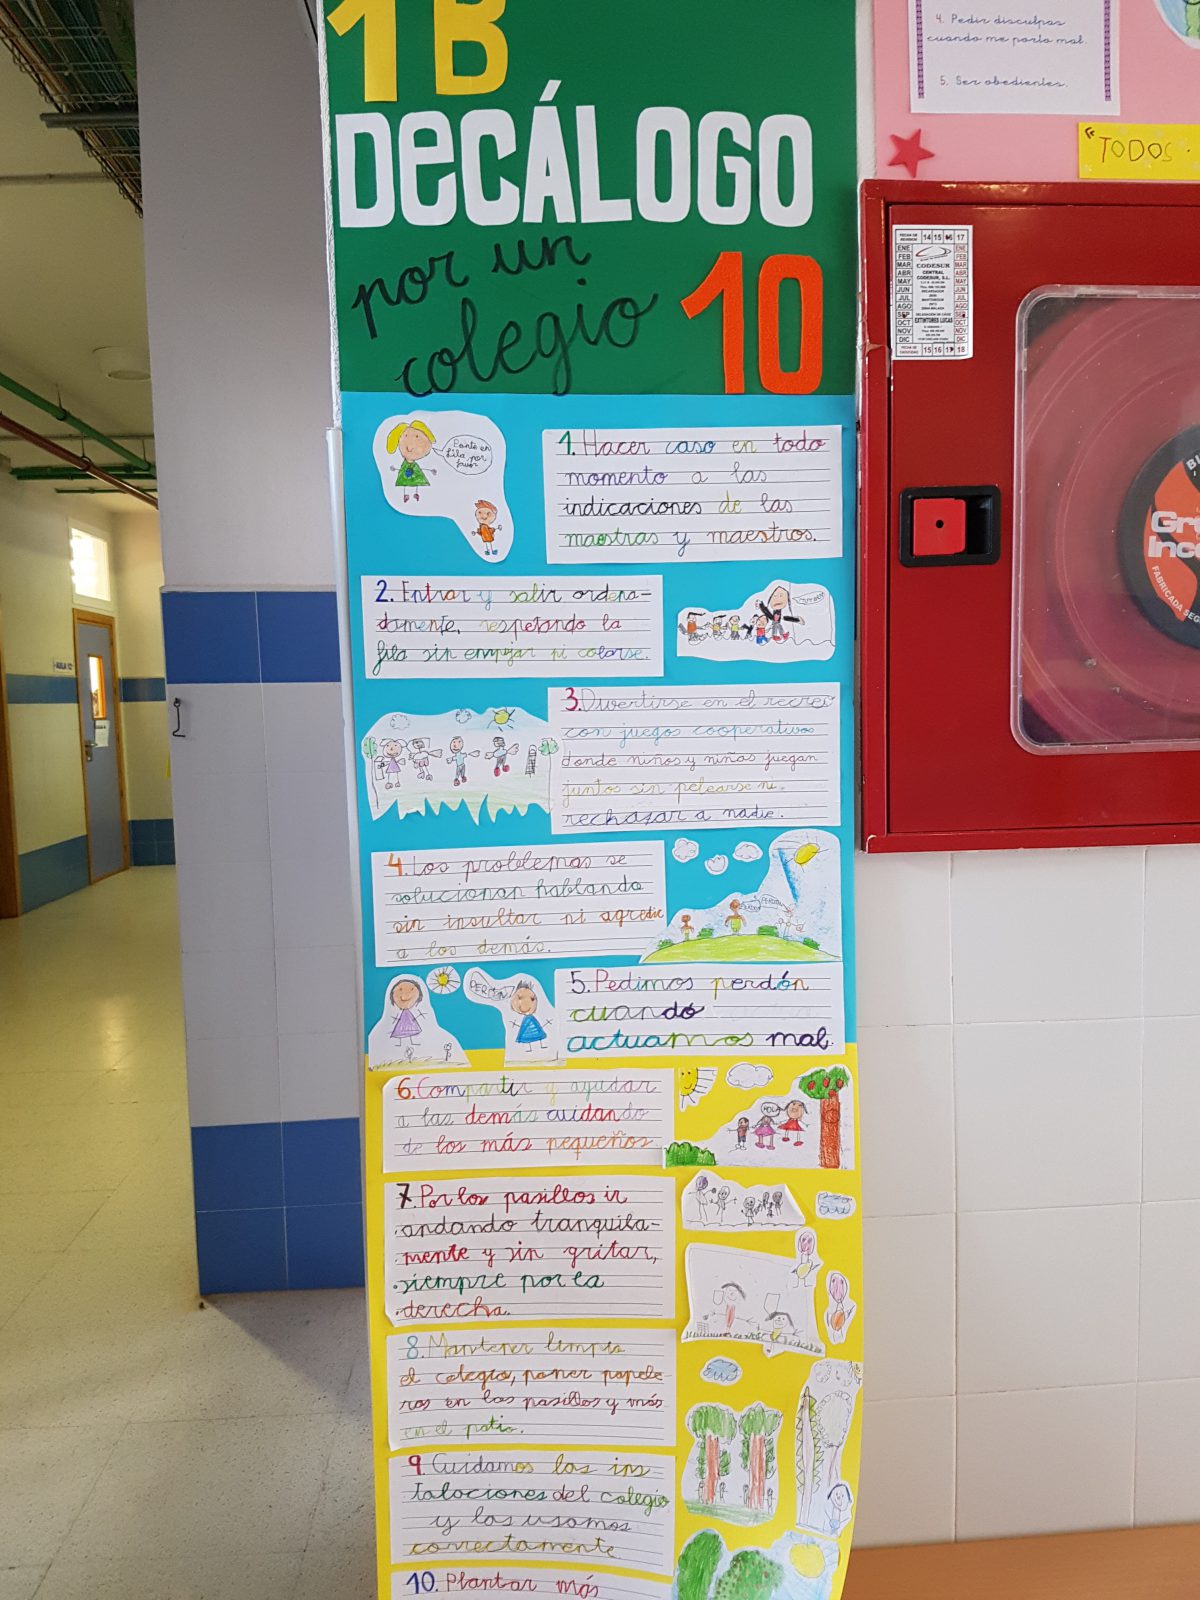 1B
DECÁLOGO
por un
colegio 10
Ponte en
fila por
favor
1. Hacer caso en todo
momento a las
indicaciones de las
maestras y maestros.
2. Entrar y salir ordena-
damente, respetando la
fila sin empujar ni colarse.
3. Divertirse en el recreo
con juegos cooperativos
donde niños y niñas juegan
juntos sin pelearse ni
rechazar a nadie.
4. Los problemas se
solucionan hablando
sin insultar ni agredir
a los demás.
PERDÓN
5. Pedimos perdón
cuando
actuamos mal.
6. Compartir y ayudar
a las demás cuidando
de los más pequeños
HOLA
7. Por los pasillos ir
andando tranquila-
mente y sin gritar,
siempre por la
derecha.
8. Mantener limpio
el colegio, poner papele-
ras en los pasillos y más
en el patio.
9. Cuidamos las ins
talaciones del colegio
y las usamos
correctamente
10. Plantar más
4. Pedir disculpas
cuando me porto mal.
5. Ser obedientes.
"TODOS
14 15 16 17
ENE
FEB
MAR
ABR
MAY
JUN
JUL
AGO
SEP
OCT
NOV
DIC
CODESUR
CENTRAL
CODESUR, S.L.
EXTINTORES LUCAS
15 16 17 18
AULA
Gr
Ince
FABRICADA SEG